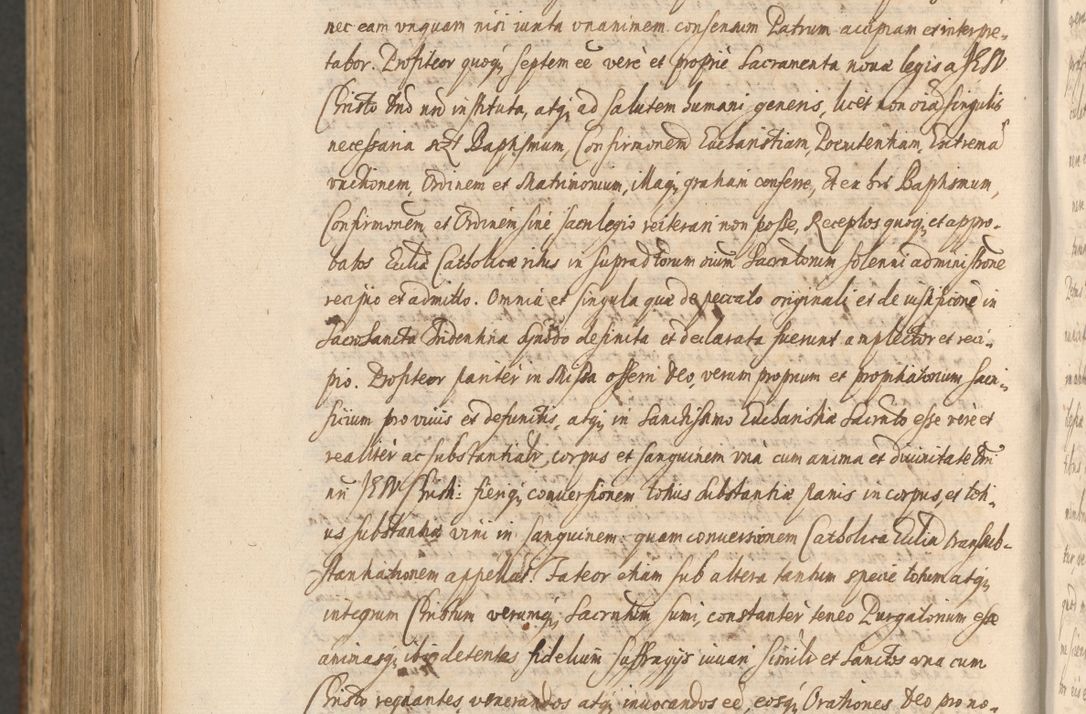 nec eam unquam nisi iuxta unanimem consensum Patrum accipiam et interpre-
tabor. Profiteor quoq, septem eē vere et proprie Sacramenta novæ legis a JESV
Christo Dnō nrō instituta, atq, ad salutem humani generis, licet non oia singulis
necessaria Baptismum, Confirmonem Eucharistiam, Poenitentiam, Extremā
unctionem, Ordinem et Matrimonium, illaq, gratiam conferre, Et ex his Baptismum,
Confirmonem et Ordinem sine sacrilegio reiterari non posse, Receptos quoq, et appro-
batos Ecclia Catholicæ ritus in supradtorum oium Sacrntorum solenni administrone
recipio et admitto. Omnia et singula quæ de peccato originali et de iustificione in
Sacrosancta Tridentina Synodo definita et declarata fuerunt amplector et reci-
pio. Profiteor pariter in Missa offerri Deo, verum proprium et propitiatorium sacri-
ficium pro vivis et defunctis, atq, in Sanctissimo Eucharistiæ Sacrnto esse vere et
realiter ac substantialr, corpus et sanguinem una cum anima et divinitate Dni
nri JESV Christi: fieriq, conversionem totius substantiæ panis in corpus, et toti-
us substantiæ vini in sanguinem: quam conversionem Catholica Ecclia transub-
stantiationem appellat. Fateor etiam sub altera tantum specie totum atq,
integrum Christum verumq, Sacrntum sumi, constanter teneo Purgatorium esse
animasq, ibi detentas fidelium suffragijs iuvari, similr et Sanctos una cum
Christo regnantes venerandos atq, invocandos eē, eosq, Orationes Deo pro no-